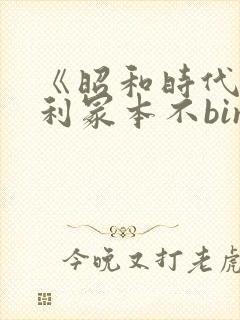 《昭和時代
利冢本不bin
今晚又打老虎